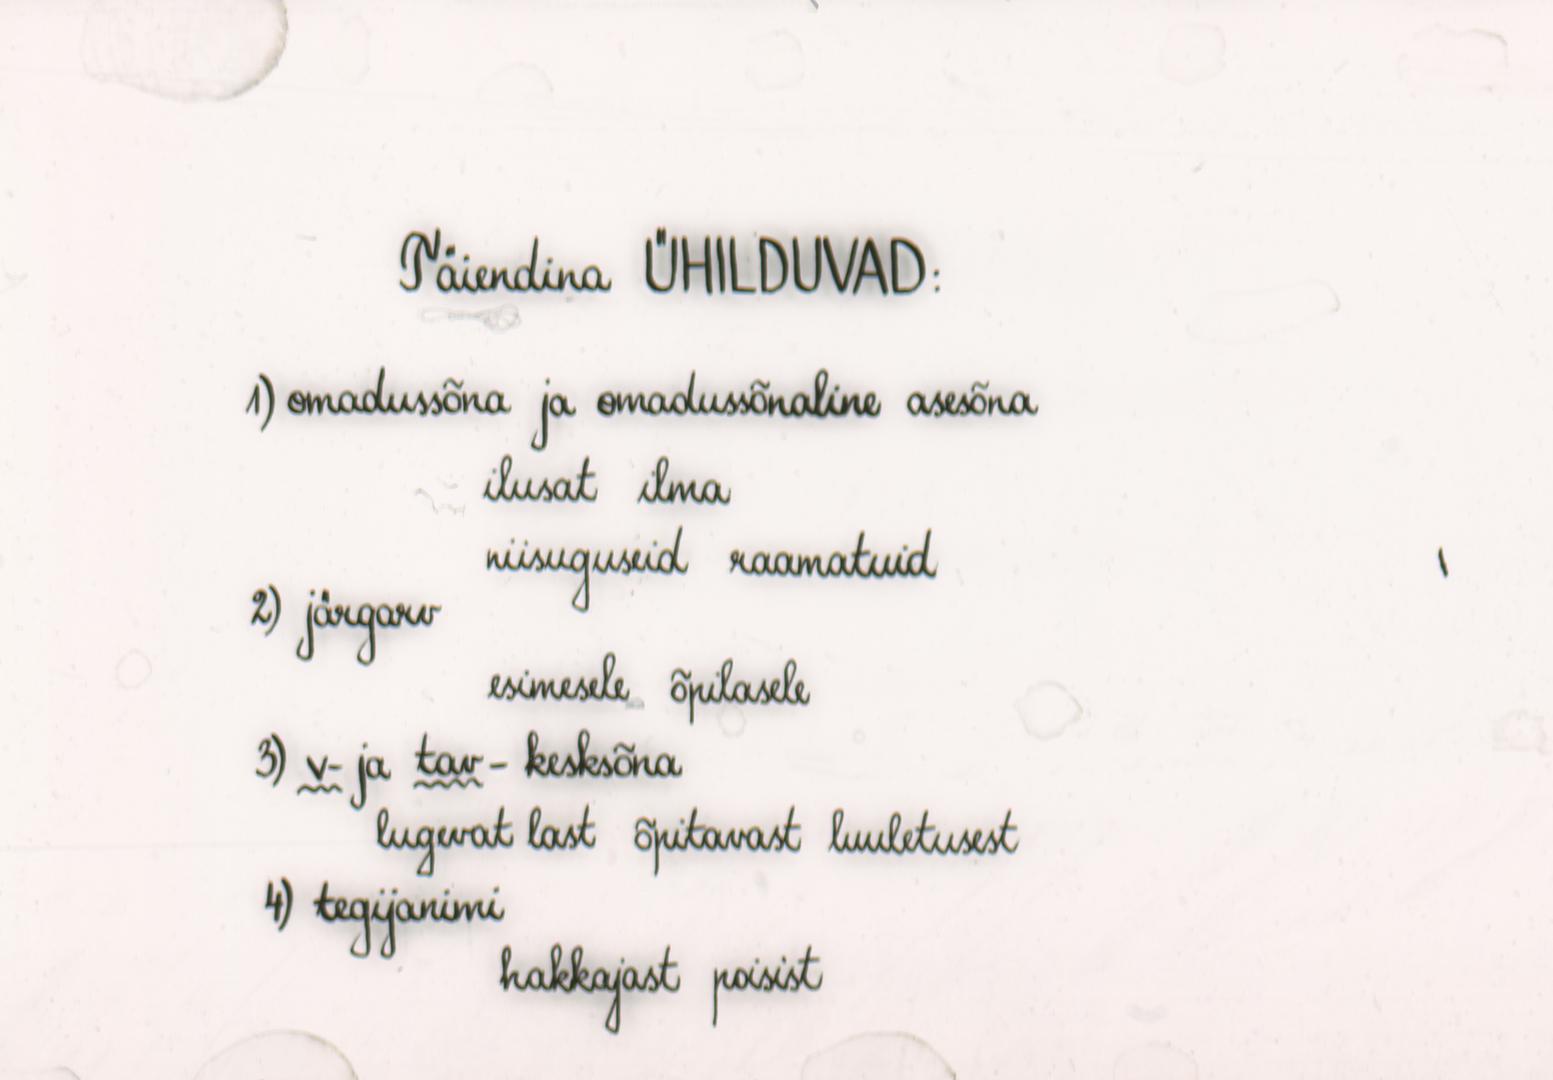 Täiendina ÜHILDUVAD:
1) omadussõna ja omadussõnaline asesõna
ilusat ilma
niisuguseid raamatuid
2) järgarv
esimesele õpilasele
3) v- ja tav- kesksõna
lugevat last õpitavast luuletusest
4) tegijanimi
hakkajast poisist